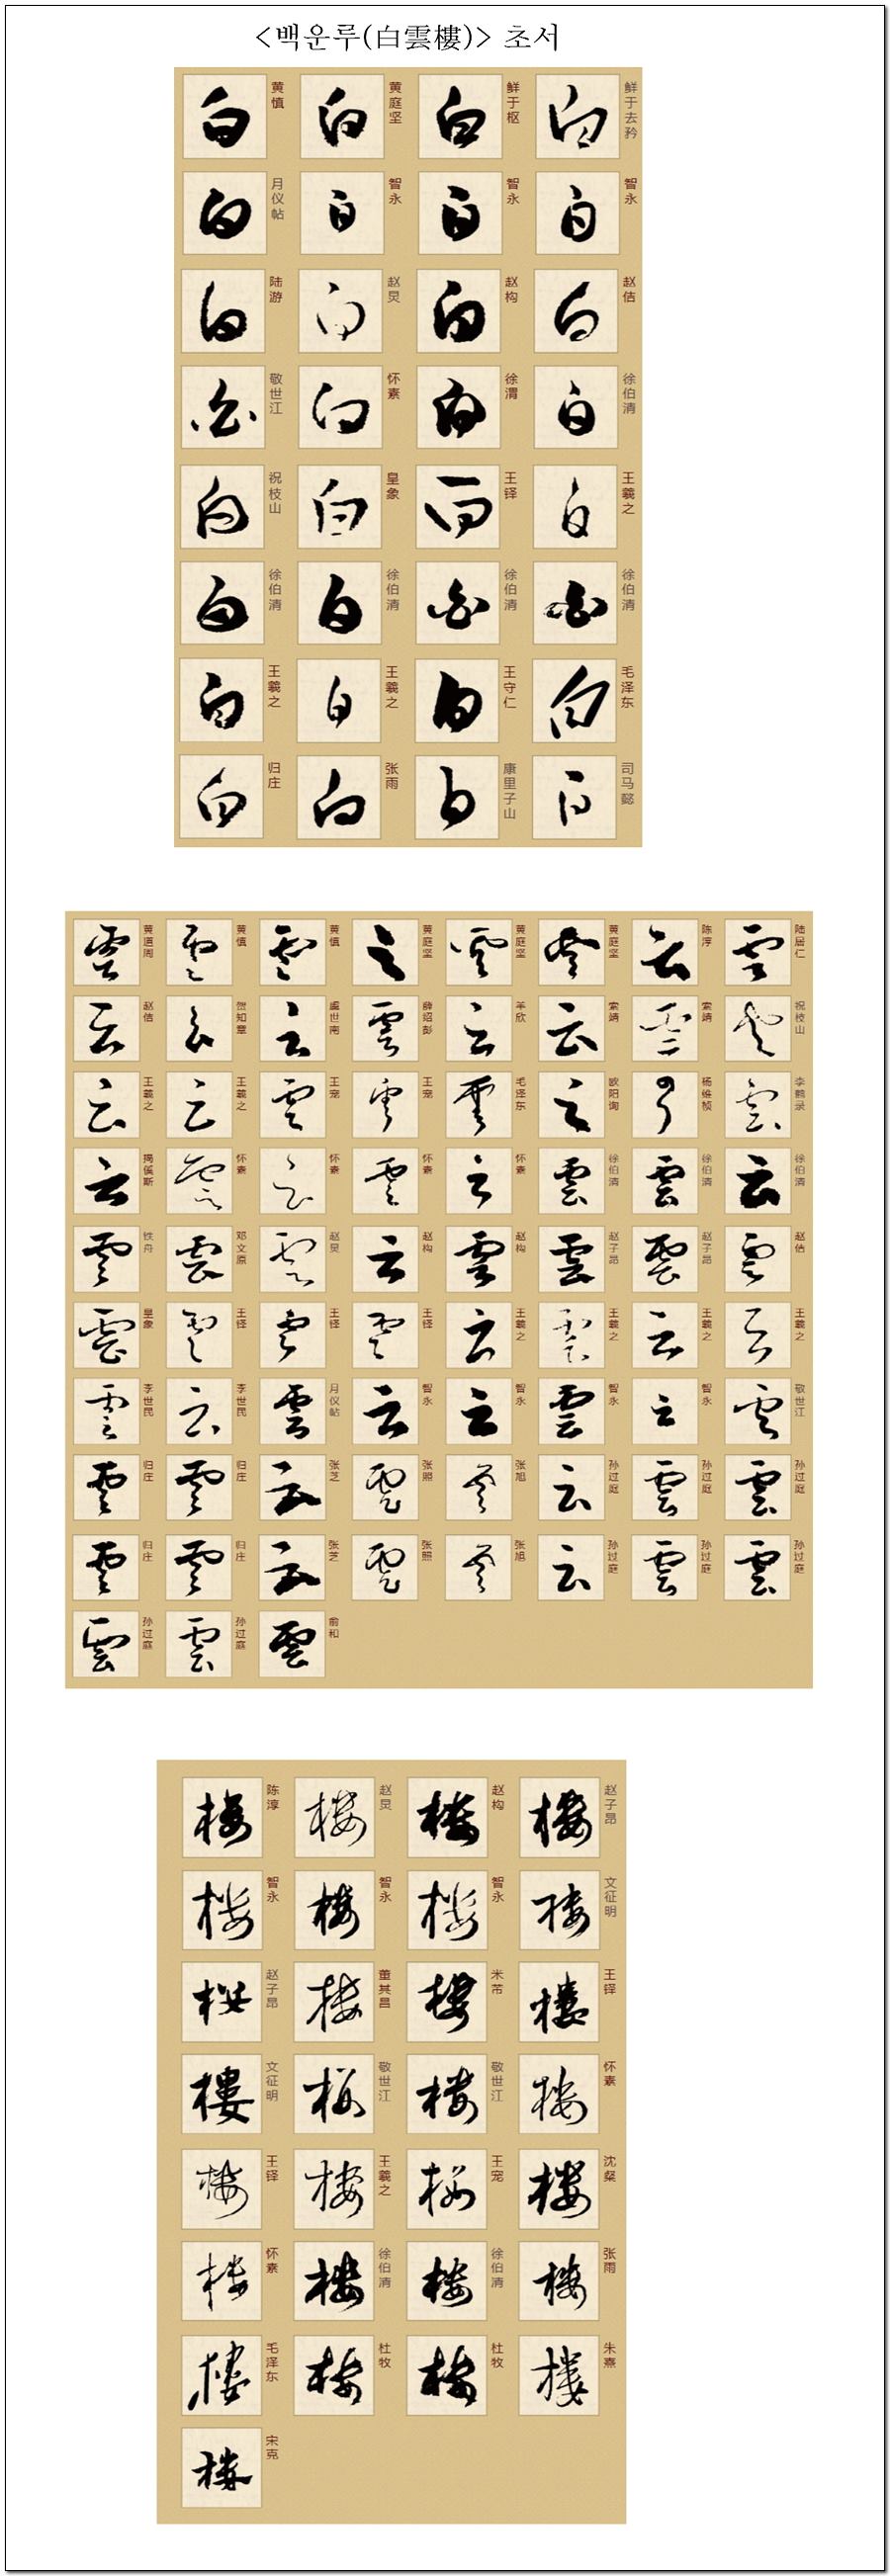 <백운루(白雲樓)> 초서
白 黄慎 白 黄庭坚 白 鲜于枢 白 鲜于去矜
白 月仪帖 白 智永 白 智永 白 智永
白 陆游 白 赵炅 白 赵构 白 赵佶
白 敬世江 白 怀素 白 徐渭 白 徐伯清
白 祝枝山 白 皇象 白 王铎 白 王羲之
白 徐伯清 白 徐伯清 白 徐伯清 白 徐伯清
白 王羲之 白 王羲之 白 王守仁 白 毛泽东
白 归庄 白 张雨 白 康里子山 白 司马懿
雲 黄道周 雲 黄慎 雲 黄慎 云 黄庭坚 雲 黄庭坚 雲 黄庭坚 云 陈淳 雲 陆居仁
云 赵佶 云 贺知章 云 虞世南 雲 薛绍彭 云 羊欣 云 索靖 雲 索靖 雲 祝枝山
云 王羲之 云 王羲之 雲 王宠 雲 王宠 雲 毛泽东 云 欧阳询 雲 杨维桢 雲 李鹤录
云 揭傒斯 雲 怀素 云 怀素 雲 怀素 云 怀素 雲 徐伯清 雲 徐伯清 云 徐伯清
雲 铁舟 雲 邓文原 雲 赵炅 云 赵构 雲 赵构 雲 赵子昂 雲 赵子昂 雲 赵佶
雲 皇象 雲 王铎 雲 王铎 雲 王铎 云 王羲之 雲 王羲之 云 王羲之 云 王羲之
雲 李世民 云 李世民 雲 月仪帖 云 智永 云 智永 雲 智永 云 智永 雲 敬世江
雲 归庄 雲 归庄 云 张芝 雲 张照 雲 张旭 云 孙过庭 雲 孙过庭 雲 孙过庭
雲 归庄 雲 归庄 云 张芝 雲 张照 雲 张旭 云 孙过庭 雲 孙过庭 雲 孙过庭
雲 孙过庭 雲 孙过庭 雲 俞和
樓 陈淳 樓 赵炅 樓 赵构 樓 赵子昂
樓 智永 樓 智永 樓 智永 樓 文征明
樓 赵子昂 樓 董其昌 樓 米芾 樓 王铎
樓 文征明 樓 敬世江 樓 敬世江 樓 怀素
樓 王铎 樓 王羲之 樓 王宠 樓 沈粲
樓 怀素 樓 徐伯清 樓 徐伯清 樓 张雨
樓 毛泽东 樓 杜牧 樓 杜牧 樓 朱熹
樓 宋克